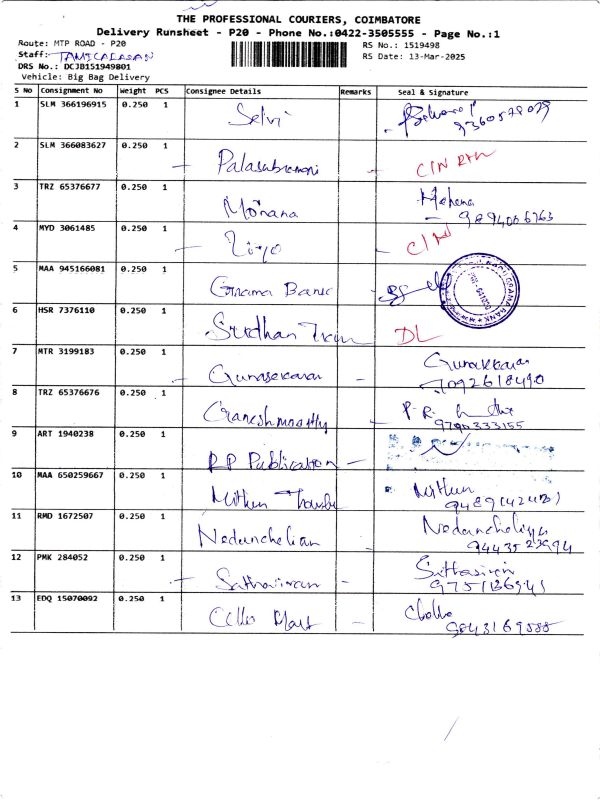 THE PROFESSIONAL COURIERS, COIMBATORE
Delivery Runsheet - P20 - Phone No.:0422-3505555 - Page No.:1
Route: MTP ROAD - P20
RS No.: 1519498
Staff: TAMILALASAN
RS Date: 13-Mar-2025
DRS No.: DCJB151949801
Vehicle: Big Bag Delivery
S No Consignment No Weight PCS Consignee Details Remarks Seal & Signature
1 SLM 366196915 0.250 1 Selvi
2 SLM 366083627 0.250 1 Palasubramani CIN RTN
3 TRZ 65376677 0.250 1 Mohana Mohana
9894006763
4 MYD 3061485 0.250 1 CIN
5 MAA 945166081 0.250 1 Grama Bank
6 HSR 7376110 0.250 1 DL
7 MTR 3199183 0.250 1 Gunasekaran
7092618490
8 TRZ 65376676 0.250 1 Ganeshmoorthy P.R.
9790333155
9 ART 1940238 0.250 1 RP Publication
10 MAA 650259667 0.250 1 Mithun Mithun
11 RMD 1672507 0.250 1 Nedunchelian Neduncheliyan
12 PMK 284052 0.250 1
13 EDQ 15070092 0.250 1 Cello Mart